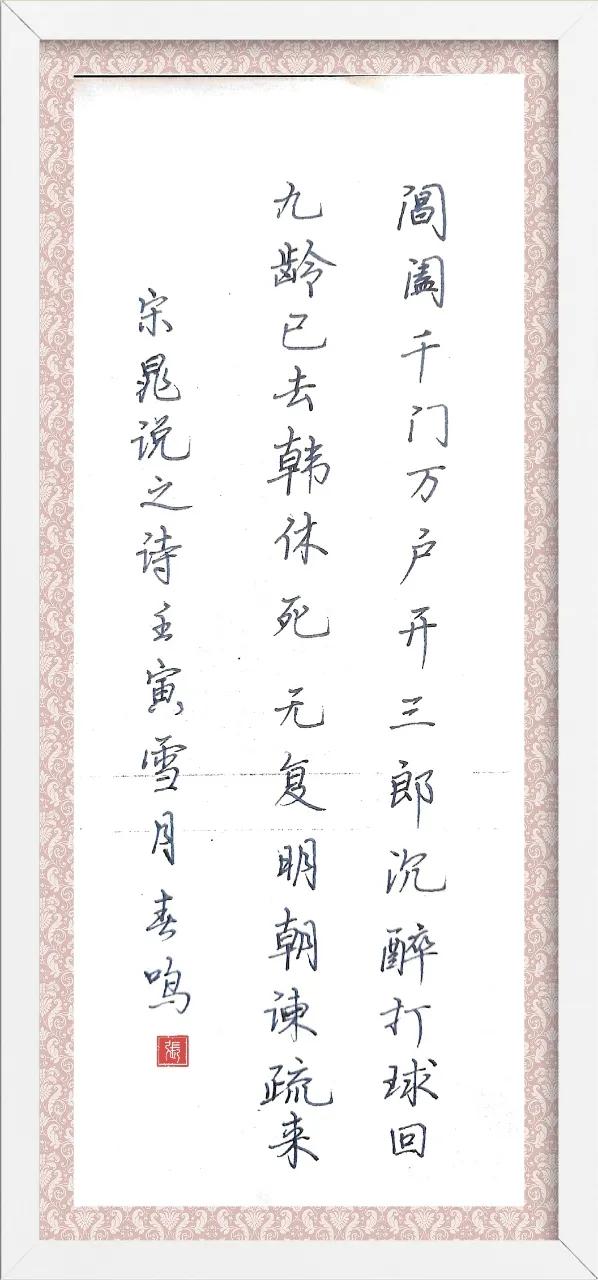 阊阖千门万户开三郎沉醉打球回
九龄已去韩休死无复明朝谏疏来
宋晁说之诗壬寅雪月春鸣
張